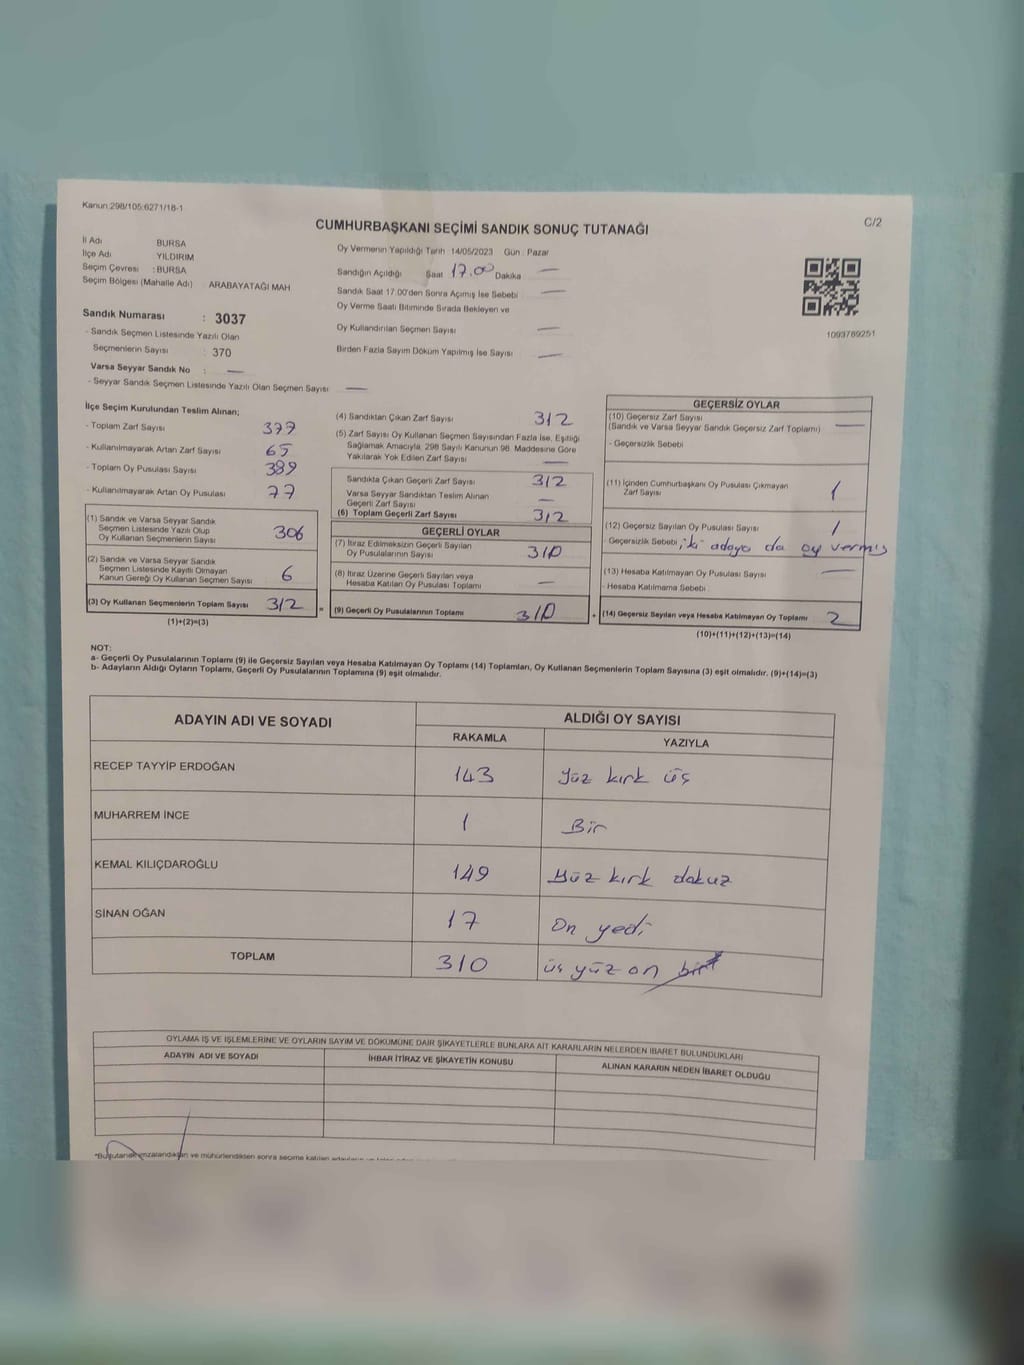 Kanun:298/105:6271/18-1
C/2
CUMHURBAŞKANI SEÇİMİ SANDIK SONUÇ TUTANAĞI
İl Adı BURSA
İlçe Adı YILDIRIM
Seçim Çevresi :BURSA
Seçim Bölgesi (Mahalle Adı) : ARABAYATAĞI MAH
Sandık Numarası : 3037
- Sandık Seçmen Listesinde Yazılı Olan
Seçmenlerin Sayısı : 370
Varsa Seyyar Sandık No : —
- Seyyar Sandık Seçmen Listesinde Yazılı Olan Seçmen Sayısı —
Oy Vermenin Yapıldığı Tarih 14/05/2023 Gün : Pazar
Sandığın Açıldığı Saat 17.00 Dakika —
Sandık Saat 17:00'den Sonra Açımış İse Sebebi —
Oy Verme Saati Bitiminde Sırada Bekleyen ve
Oy Kullandırılan Seçmen Sayısı —
Birden Fazla Sayım Döküm Yapılmış İse Sayısı —
1093769251
İlçe Seçim Kurulundan Teslim Alınan;
- Toplam Zarf Sayısı 377
- Kullanılmayarak Artan Zarf Sayısı 65
- Toplam Oy Pusulası Sayısı 389
- Kullanılmayarak Artan Oy Pusulası 77
(1) Sandık ve Varsa Seyyar Sandık
Seçmen Listesinde Yazılı Olup
Oy Kullanan Seçmenlerin Sayısı 306
(2) Sandık ve Varsa Seyyar Sandık
Seçmen Listesinde Kayıtlı Olmayan
Kanun Gereği Oy Kullanan Seçmen Sayısı 6
(3) Oy Kullanan Seçmenlerin Toplam Sayısı 312
(1)+(2)=(3)
(4) Sandıktan Çıkan Zarf Sayısı 312
(5) Zarf Sayısı Oy Kullanan Seçmen Sayısından Fazla İse, Eşitliği
Sağlamak Amacıyla, 298 Sayılı Kanunun 98. Maddesine Göre
Yakılarak Yok Edilen Zarf Sayısı —
Sandıkta Çıkan Geçerli Zarf Sayısı 312
Varsa Seyyar Sandıktan Teslim Alınan
Geçerli Zarf Sayısı —
(6) Toplam Geçerli Zarf Sayısı 312
GEÇERLİ OYLAR
(7) İtiraz Edilmeksizin Geçerli Sayılan
Oy Pusulalarının Sayısı 310
(8) İtiraz Üzerine Geçerli Sayılan veya
Hesaba Katılan Oy Pusulası Toplamı —
(9) Geçerli Oy Pusulalarının Toplamı 310
GEÇERSİZ OYLAR
(10) Geçersiz Zarf Sayısı
(Sandık ve Varsa Seyyar Sandık Geçersiz Zarf Toplamı) —
- Geçersizlik Sebebi
(11) İçinden Cumhurbaşkanı Oy Pusulası Çıkmayan
Zarf Sayısı 1
(12) Geçersiz Sayılan Oy Pusulası Sayısı 1
- Geçersizlik Sebebi iki adaya da oy vermiş
(13) Hesaba Katılmayan Oy Pusulası Sayısı —
- Hesaba Katılmama Sebebi
(14) Geçersiz Sayılan veya Hesaba Katılmayan Oy Toplamı 2
(10)+(11)+(12)+(13)=(14)
NOT:
a- Geçerli Oy Pusulalarının Toplamı (9) ile Geçersiz Sayılan veya Hesaba Katılmayan Oy Toplamı (14) Toplamları, Oy Kullanan Seçmenlerin Toplam Sayısına (3) eşit olmalıdır. (9)+(14)=(3)
b- Adayların Aldığı Oyların Toplamı, Geçerli Oy Pusulalarının Toplamına (9) eşit olmalıdır.
ADAYIN ADI VE SOYADI ALDIĞI OY SAYISI
RAKAMLA YAZIYLA
RECEP TAYYİP ERDOĞAN 143 Yüz kırk üç
MUHARREM İNCE 1 Bir
KEMAL KILIÇDAROĞLU 149 Yüz kırk dokuz
SİNAN OĞAN 17 On yedi
TOPLAM 310 üç yüz on
OYLAMA İŞ VE İŞLEMLERİNE VE OYLARIN SAYIM VE DÖKÜMÜNE DAİR ŞİKAYETLERLE BUNLARA AİT KARARLARIN NELERDEN İBARET BULUNDUKLARI
ADAYIN ADI VE SOYADI İHBAR İTİRAZ VE ŞİKAYETİN KONUSU ALINAN KARARIN NEDEN İBARET OLDUĞU
ve mühürlendikten sonra seçime katılan